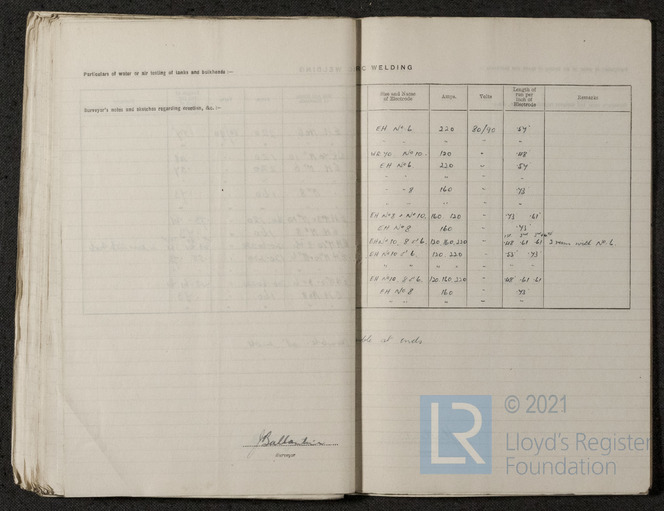 Particulars of water or air testing of tanks and bulkheads :—
Surveyor's notes and sketches regarding erection, &c. :—
Surveyor
RIC WELDING
Size and Name of Electrode Amps. Volts Length of run per inch of Electrode Remarks
EH No 6 220 80/90 .54
" " " "
No 10. 120 " .48
EH No 6. 220 " .54
" " " "
" 8 160 " .73
" " " "
EH No 8 & No 10. 160 120 " .73 .61
EH No 8 160 " .73
EH No 10, 8 & 6. 120 160 220 " .48 .61 .61 with No 6.
EH No 10 & 6. 120 220 " .73
" " " "
EH No 10, 8 & 6. 120 160 220 " .48 .61 .61
EH No 8 160 " .73
" " " "
at ends
LR
© 2021
Lloyd's Register
Foundation